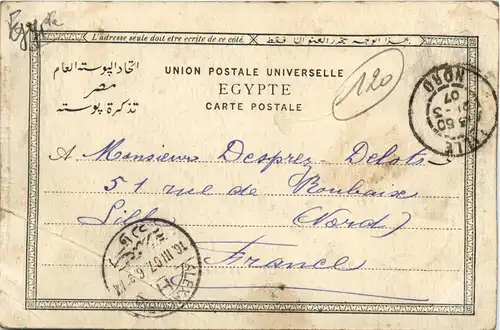 Egypte
L'adresse seule doit être écrite de ce côté.
هذا الوجه يحرر العنوان فقط
اتحاد البوسته العام
مصر
تذكرة بوسته
UNION POSTALE UNIVERSELLE
EGYPTE
CARTE POSTALE
120
LILLE
NORD
21-3
07
A Monsieur Desprez-Delots
51 rue de Roubaix
Lille (Nord)
France
16 III 07
ALEX